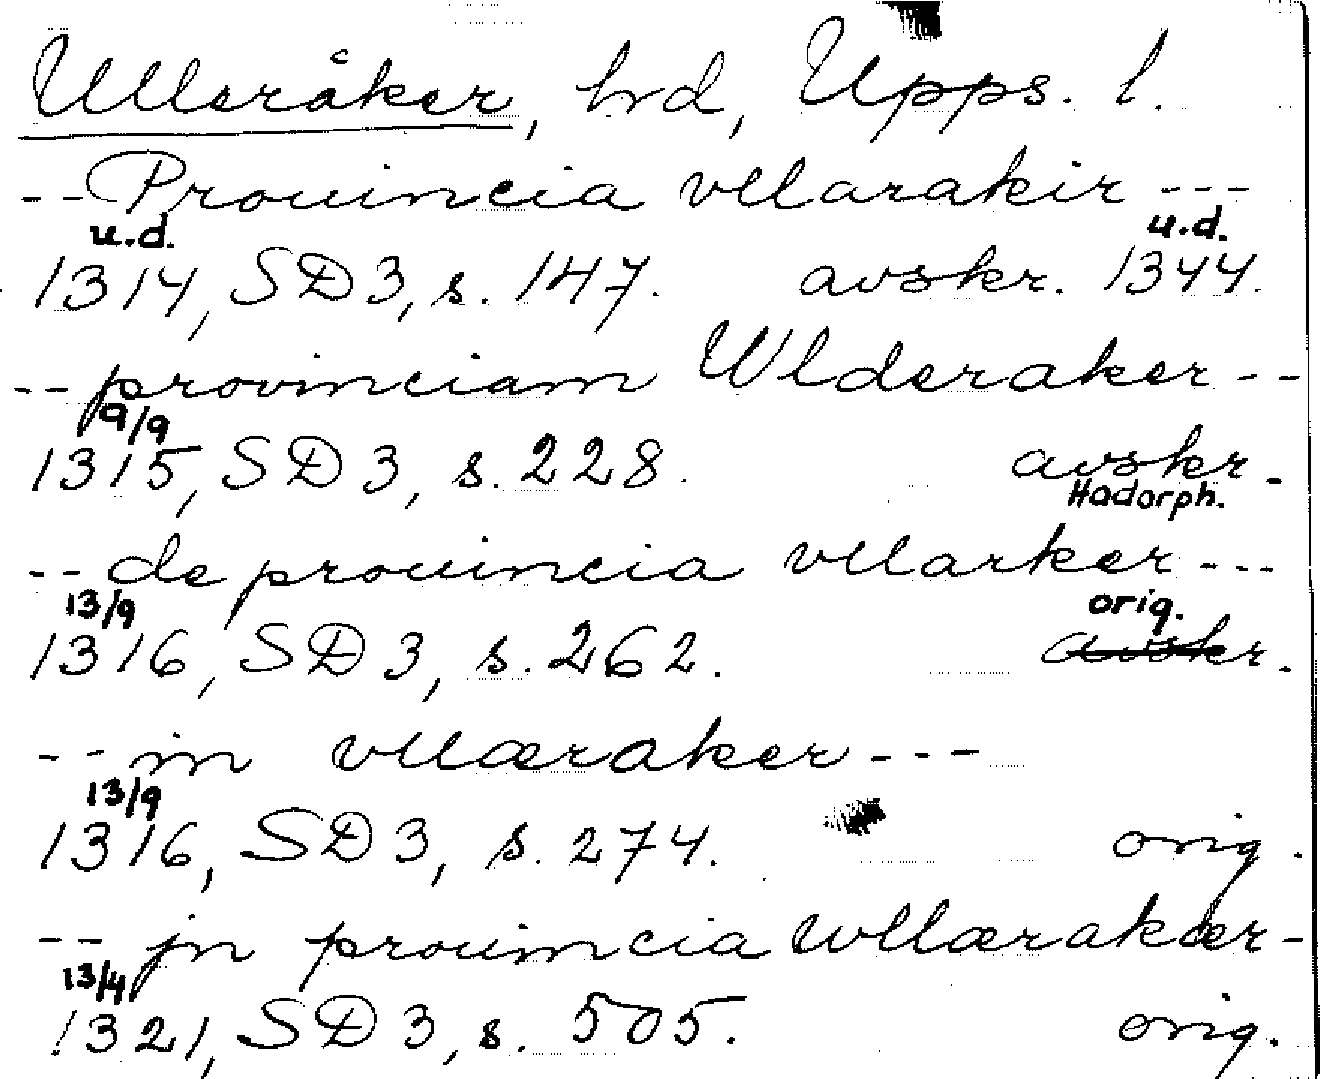 Ulleråker, hrd, Upps. l.
-- Prouincia vllarakir ---
u.d. u.d.
1314, SD 3, s. 147. avskr. 1344.
-- provinciam Wlderaker --
9/9
1315, SD 3, s. 228. avskr.
Hadorph.
-- de prouincia vllarker ---
13/9 orig.
1316, SD 3, s. 262. avskr.
-- in vllæraker ---
13/9
1316, SD 3, s. 274. orig.
-- jn prouincia wllærakær -
13/4
1321, SD 3, s. 505. orig.